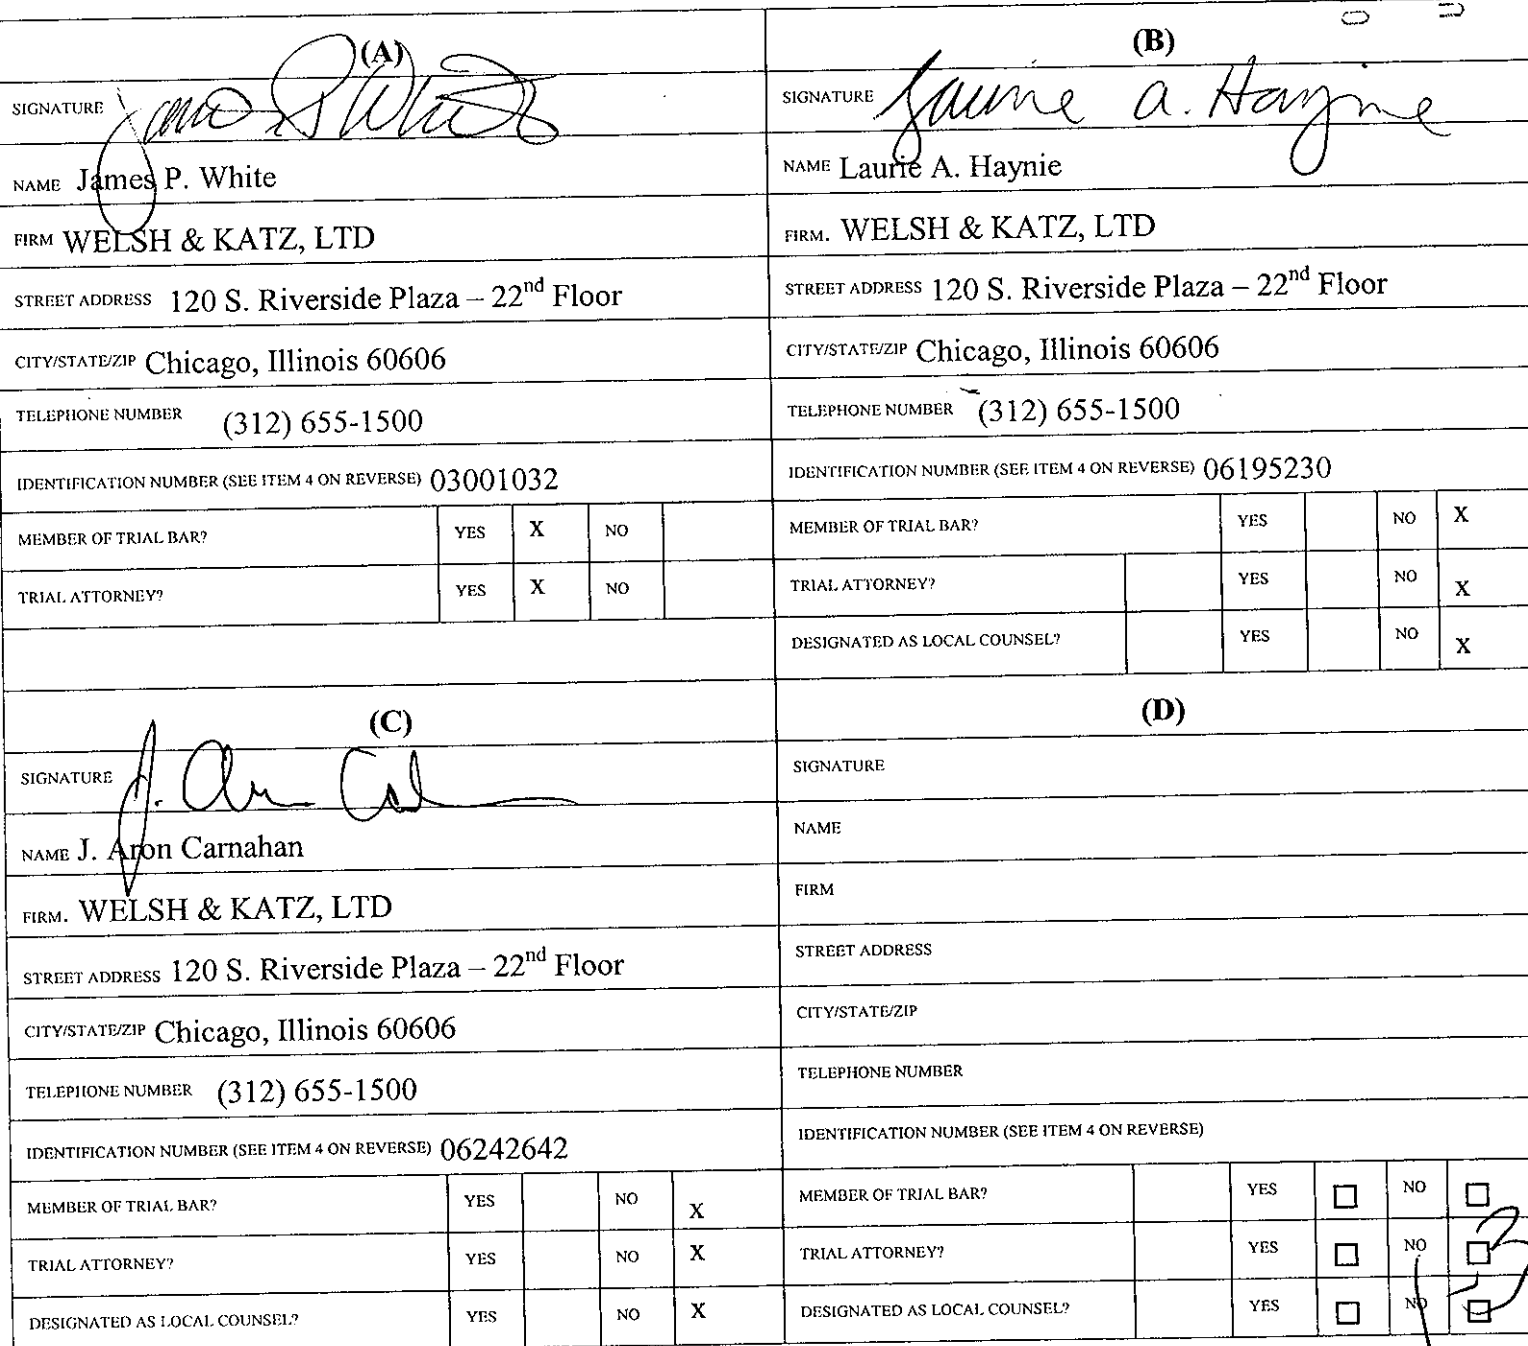 (A)
SIGNATURE James P White
NAME James P. White
FIRM WELSH & KATZ, LTD
STREET ADDRESS 120 S. Riverside Plaza – 22nd Floor
CITY/STATE/ZIP Chicago, Illinois 60606
TELEPHONE NUMBER (312) 655-1500
IDENTIFICATION NUMBER (SEE ITEM 4 ON REVERSE) 03001032
MEMBER OF TRIAL BAR? YES X NO
TRIAL ATTORNEY? YES X NO
(B)
SIGNATURE Laurie A. Haynie
NAME Laurie A. Haynie
FIRM. WELSH & KATZ, LTD
STREET ADDRESS 120 S. Riverside Plaza – 22nd Floor
CITY/STATE/ZIP Chicago, Illinois 60606
TELEPHONE NUMBER (312) 655-1500
IDENTIFICATION NUMBER (SEE ITEM 4 ON REVERSE) 06195230
MEMBER OF TRIAL BAR? YES NO X
TRIAL ATTORNEY? YES NO X
DESIGNATED AS LOCAL COUNSEL? YES NO X
(C)
SIGNATURE J.
NAME J. Aron Carnahan
FIRM. WELSH & KATZ, LTD
STREET ADDRESS 120 S. Riverside Plaza – 22nd Floor
CITY/STATE/ZIP Chicago, Illinois 60606
TELEPHONE NUMBER (312) 655-1500
IDENTIFICATION NUMBER (SEE ITEM 4 ON REVERSE) 06242642
MEMBER OF TRIAL BAR? YES NO X
TRIAL ATTORNEY? YES NO X
DESIGNATED AS LOCAL COUNSEL? YES NO X
(D)
SIGNATURE
NAME
FIRM
STREET ADDRESS
CITY/STATE/ZIP
TELEPHONE NUMBER
IDENTIFICATION NUMBER (SEE ITEM 4 ON REVERSE)
MEMBER OF TRIAL BAR? YES ☐ NO ☐
TRIAL ATTORNEY? YES ☐ NO ☐
DESIGNATED AS LOCAL COUNSEL? YES ☐ NO ☐